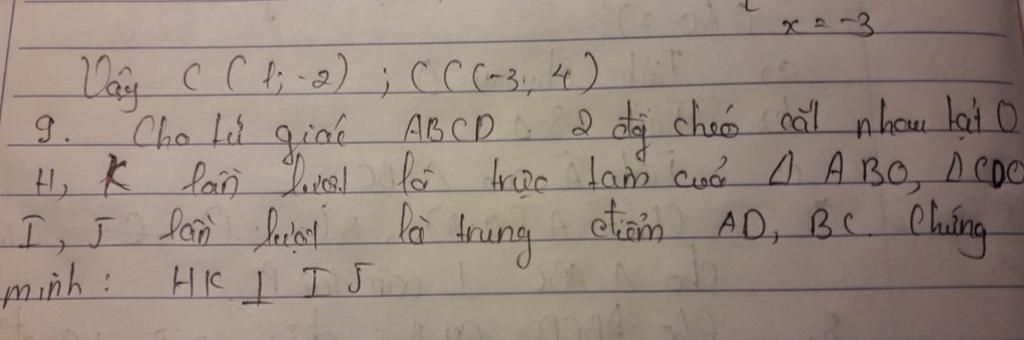 x = -3
Vậy C (1; -2) ; C (-3; 4)
9. Cho tứ giác ABCD. 2 đg chéo cắt nhau tại O
H, K lần lượt là trực tâm của Δ ABO, Δ CDO
I, J lần lượt là trung điểm AD, BC. Chứng
minh : HK ⊥ IJ